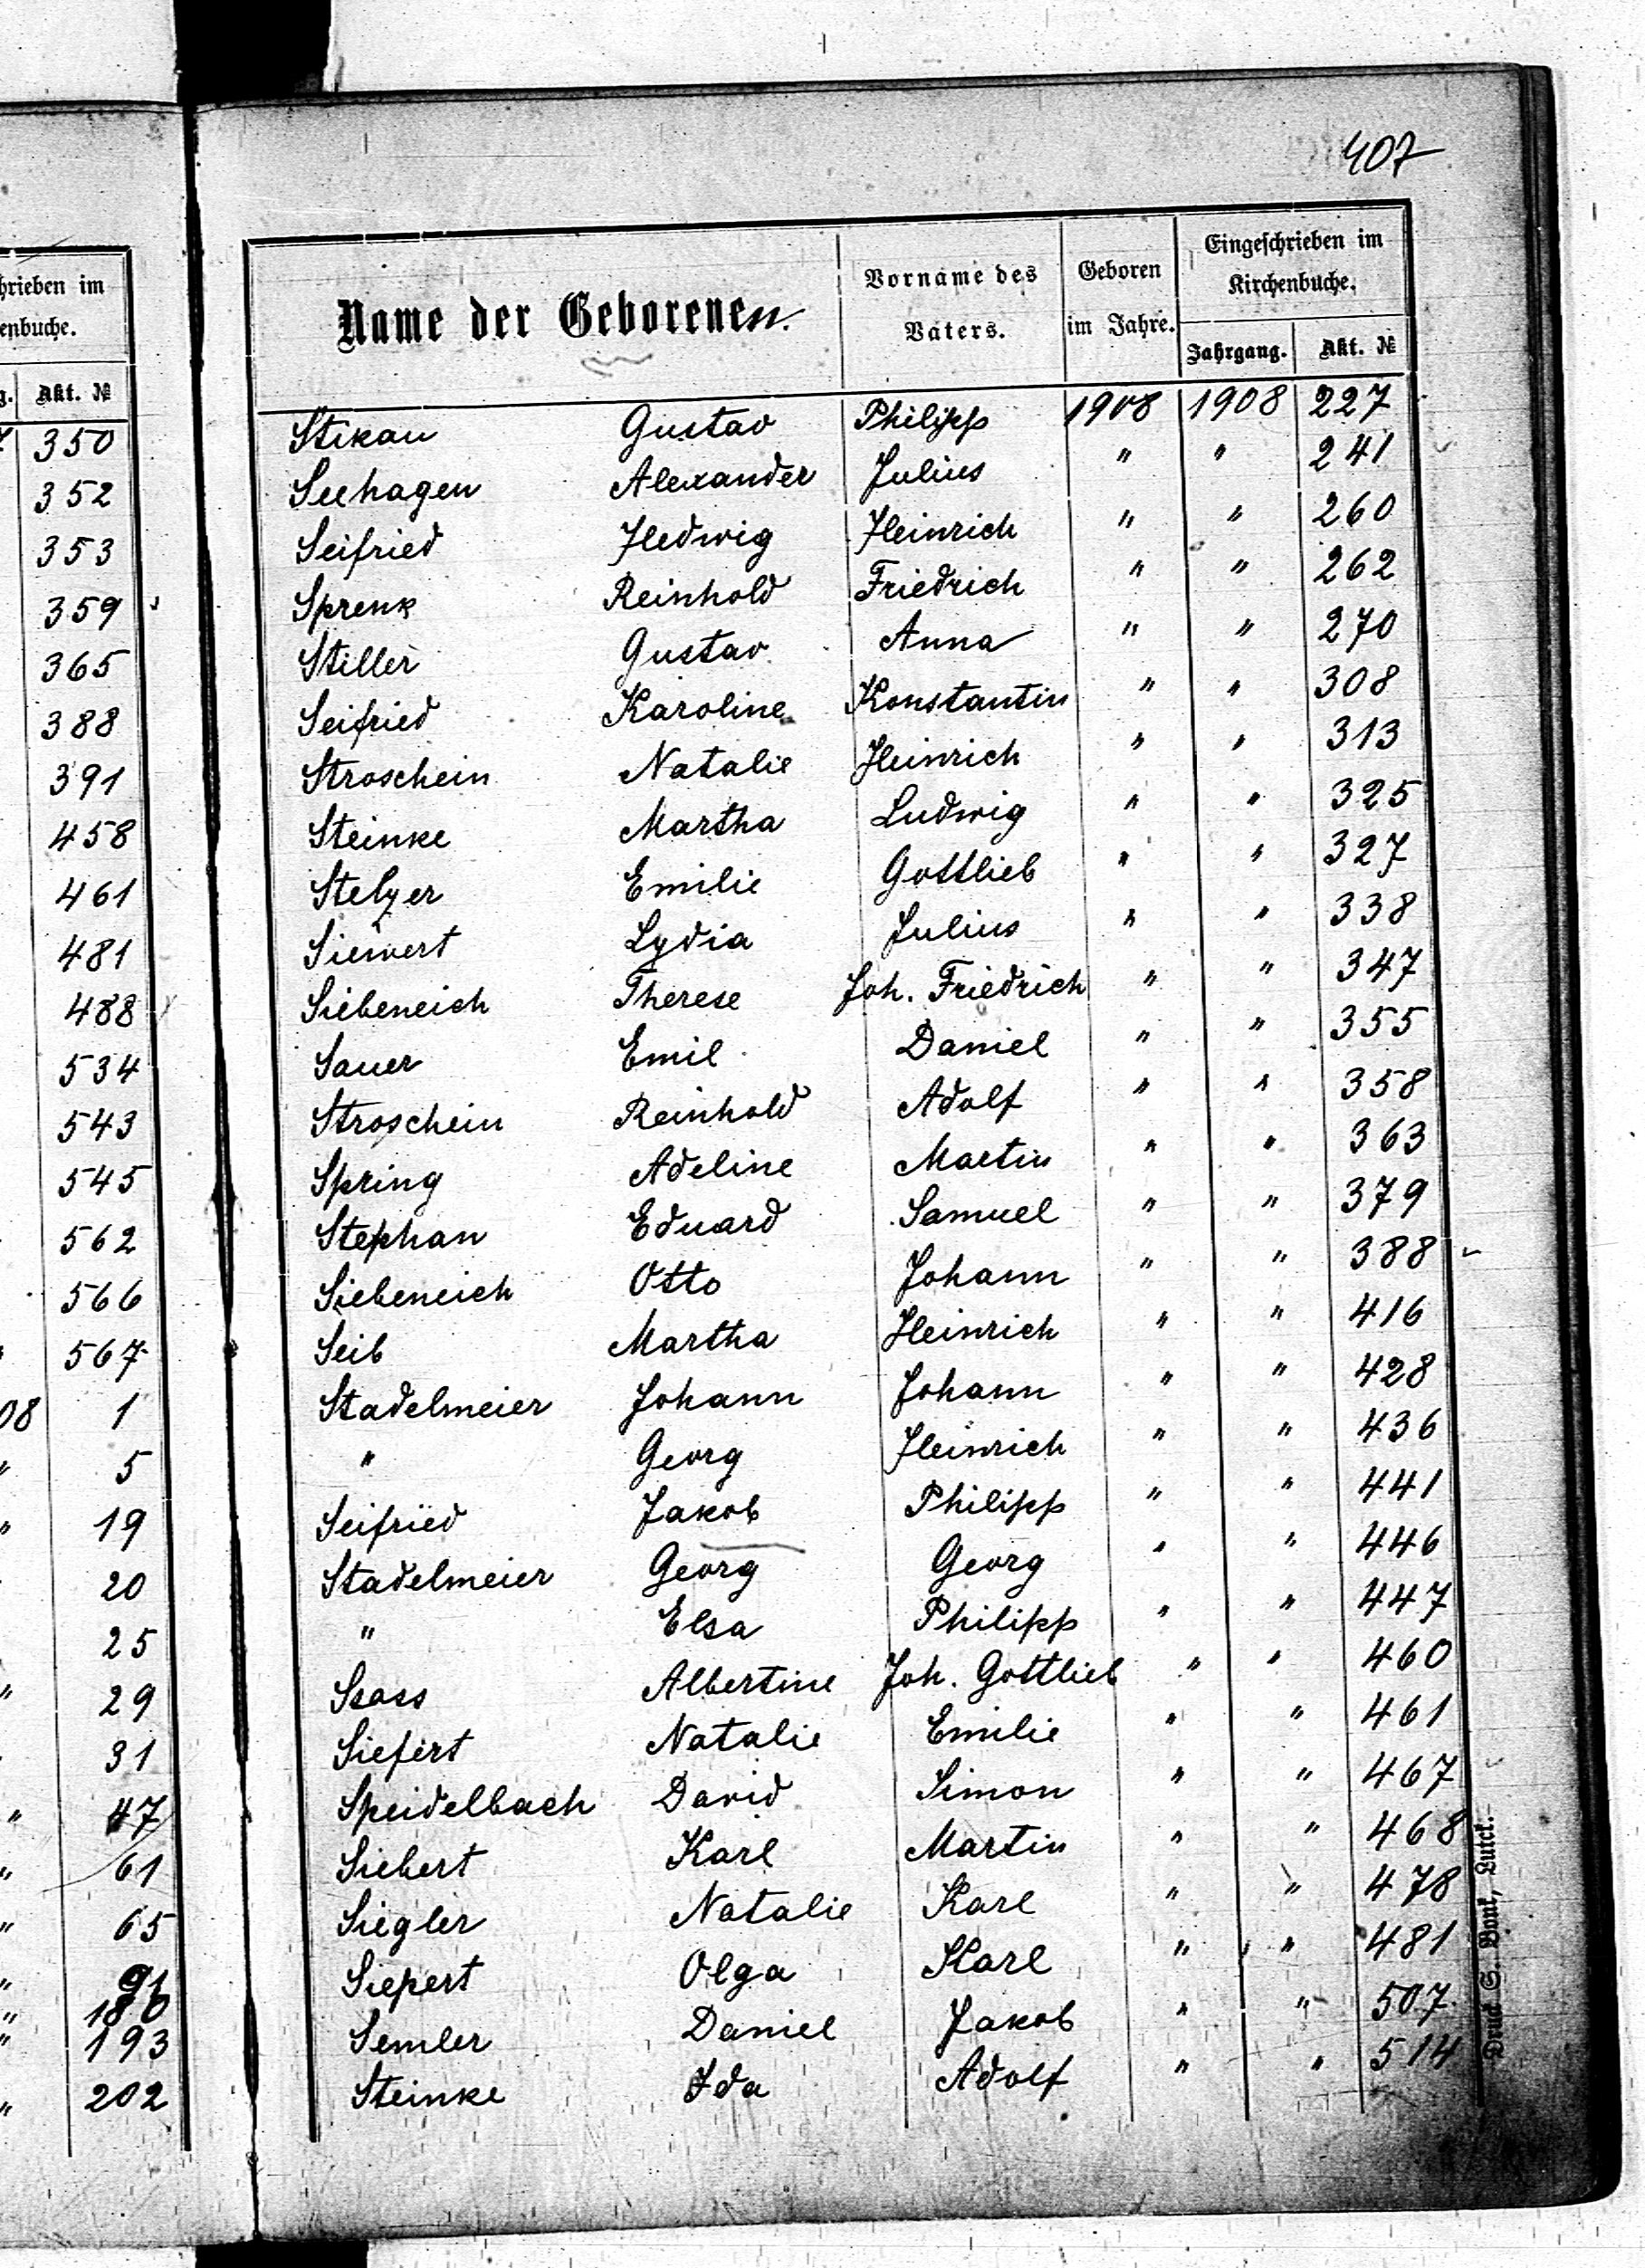 407
Name der Geborenen.
Vorname des Vaters.
Geboren im Jahre.
Eingeschrieben im Kirchenbuche.
Jahrgang. Akt. №
Stikau Gustav Philipp 1908 1908 227
Seehagen Alexander Julius " " 241
Seifried Hedwig Heinrich " " 260
Sprenk Reinhold Friedrich " " 262
Stiller Gustav Anna " " 270
Seifried Karoline Konstantin " " 308
Stroschein Natalie Heinrich " " 313
Steinke Martha Ludwig " " 325
Stelzer Emilie Gottlieb " " 327
Siewert Lydia Julius " " 338
Siebeneich Therese Joh. Friedrich " " 347
Sauer Emil Daniel " " 355
Stroschein Reinhold Adolf " " 358
Spring Adeline Martin " " 363
Stephan Eduard Samuel " " 379
Siebeneich Otto Johann " " 388
Seib Martha Heinrich " " 416
Stadelmeier Johann Johann " " 428
" Georg Heinrich " " 436
Seifried Jakob Philipp " " 441
Stadelmeier Georg Georg " " 446
" Elsa Philipp " " 447
Ssass Albertine Joh. Gottlieb " " 460
Siefert Natalie Emilie " " 461
Speidelbach David Simon " " 467
Siebert Karl Martin " " 468
Siegler Natalie Karl " " 478
Siepert Olga Karl " " 481
Semler Daniel Jakob " " 507
Steinke Ida Adolf " " 514
Druck S. Bonk, Lutck.
hrieben im
enbuche.
g. Akt. №
7 350
352
353
359
365
388
391
458
461
481
488
534
543
545
562
566
" 567
08 1
" 5
" 19
20
25
" 29
31
" 47
" 61
" 65
" 91
" 180
" 193
" 202